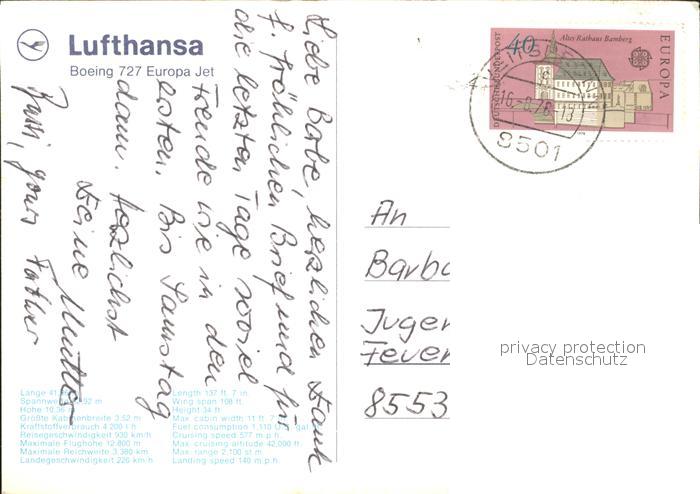 Lufthansa
Boeing 727 Europa Jet
Liebe Babe, herzlichen Dank
f. fröhlichen Brief und für
die letzten Tage soviel
Freude wie in den
ersten. Bis Samstag
dann. Herzlichst
Deine Mutter
Bussi, yours Father
DEUTSCHE BUNDESPOST
40
Altes Rathaus Bamberg
EUROPA
8501
An
Barba
Jugen
Feuer
8553
privacy protection
Datenschutz
Länge 41,
Spannweite 32,92 m
Hohe 10,36 m
Größte Kabinenbreite 3,52 m
Kraftstoffverbrauch 4.200 l h
Reisegeschwindigkeit 930 km/h
Maximale Flughöhe 12.800 m
Maximale Reichweite 3.380 km
Landegeschwindigkeit 226 km/h
Length 137 ft. 7 in.
Wing span 108 ft.
Height 34 ft
Max cabin width 11 ft. 7
Fuel consumption 1,110 U.S. gal
Cruising speed 577 m.p.h.
Max. cruising altitude 42,000 ft.
Max. range 2,100 st.m.
Landing speed 140 m.p.h.